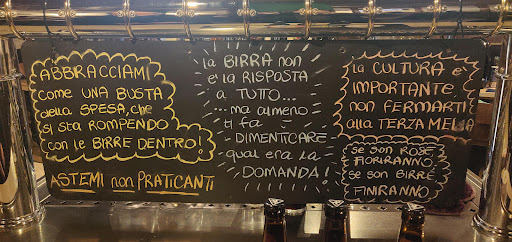 ABBRACCIAMI
COME UNA BUSTA
della SPESA, che
si sta ROMPENDO
con le BIRRE DENTRO!
ASTEMI non PRATICANTI
la BIRRA non
e' la RISPOSTA
a TUTTO...
...ma almeno
ti fa
DIMENTICARE
qual era la
DOMANDA!
la CULTURA e'
IMPORTANTE
non FERMARTI
alla TERZA MEDIA
se son ROSE
FIORIRANNO
se son BIRRE
FINIRANNO